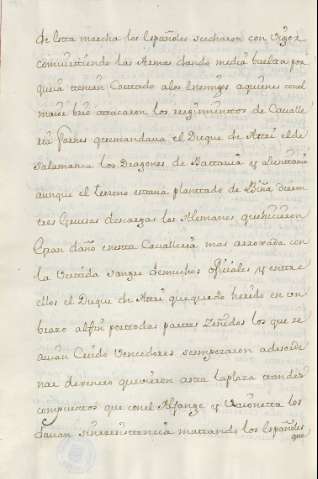 de esta marcha los españoles se echaron con Vigor
combatiendo las Armas dando media buelta por
que ia tenian Cortado a los Enemigos aquienes con el
maior brio atacaron los regimientos de Cavalle
ria que mandava el Duque de Atri el de
Salamanca los Dragones de Battavia y
aunque el terreno estava plantado de Viña dieron
tres descargas los Alemanes que hicieron
Gran daño en esta Cavalleria mas arrojada con
la Vertida Sangre de muchos ofiziales y entre
ellos el Duque de Atri que quedo herido en un
brazo al fin por todas partes Zeñidos los que se
avian Creido Vencedores se empezaron a desorde
nar de verse en la plaza tan des
compuestos que con el Alfange y Vaioneta los
davan sin resistencia matando los españoles
que